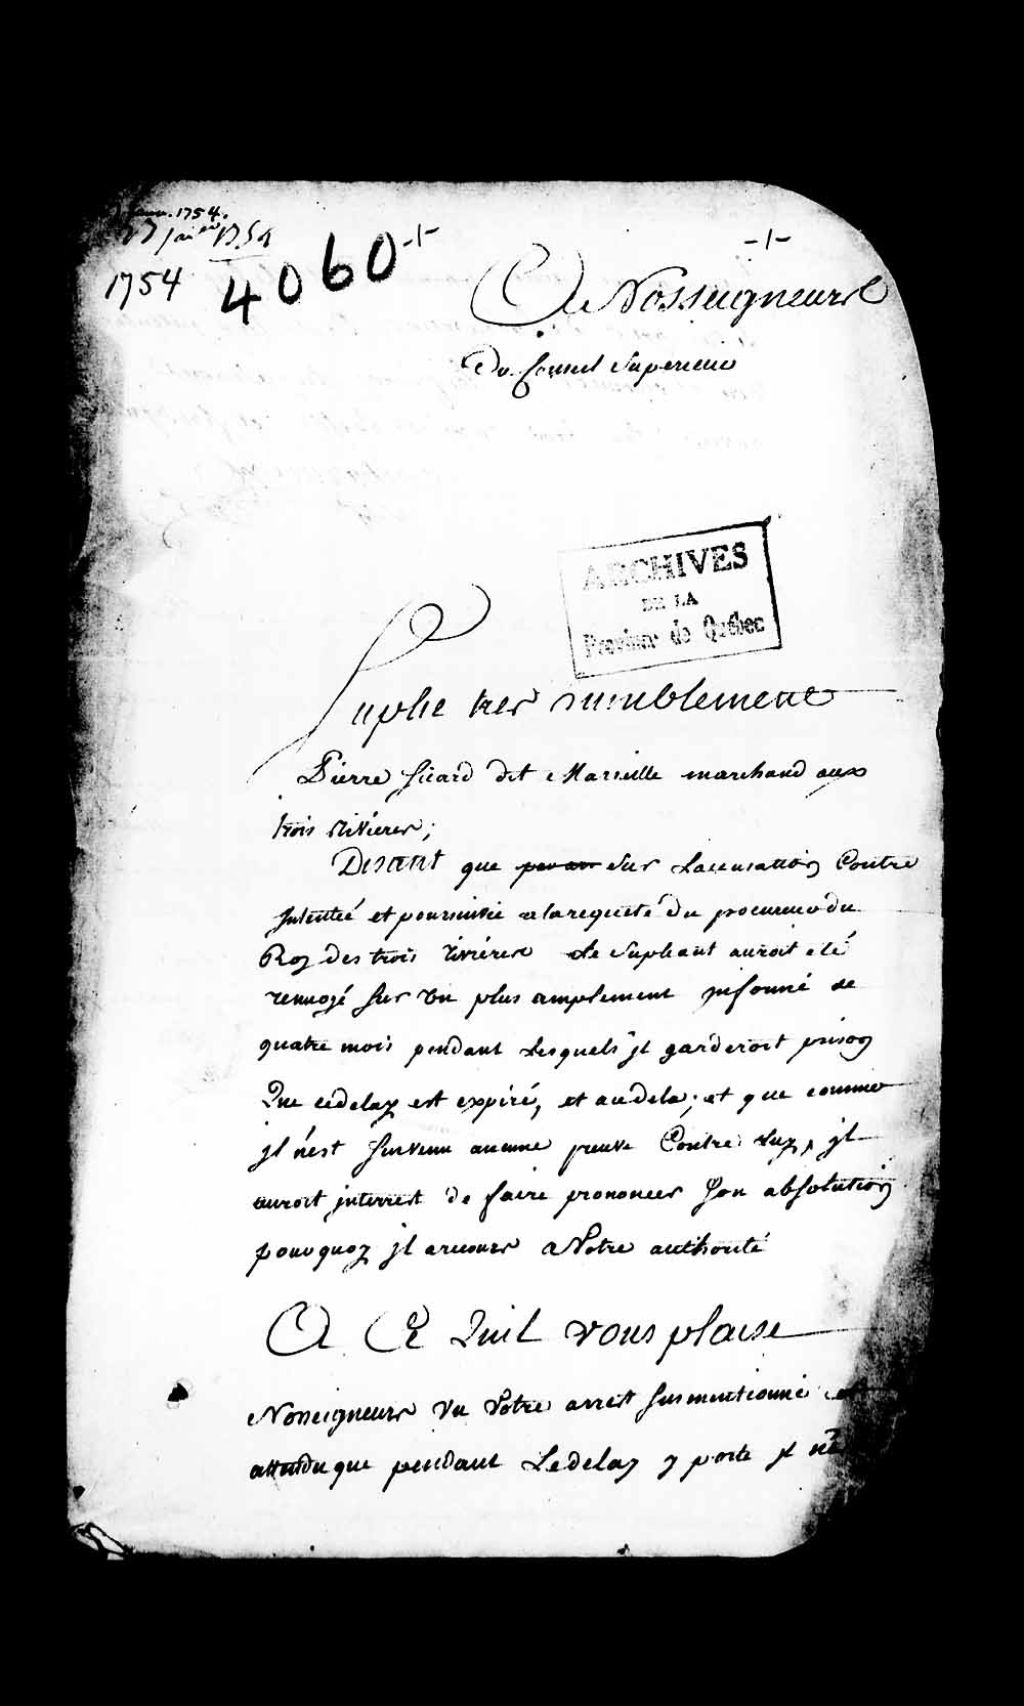 janv. 1754.
17 janer 1754
1754
4060
A Nosseigneurs
Du Conseil Superieur
ARCHIVES
DE LA
Province de Québec
Suplie tres humblement
Pierre Sicard dit Marseille marchand aux
trois Rivieres;
Disant que sur Lacusation Contre
Intentée et poursuivie a la requete du procureur du
Roy des trois rivieres Le Supliant auroit eté
renvoyé sur un plus amplement jnformé de
quatre mois pendant Lesquels jl garderoit prison
Que cedelay est expiré, et audela; et que comme
jl n'est survenu aucune preuve Contre Luy, jl
auroit jnterrest de faire prononcer son absolution
pourquoy jl a recours a Votre authorité
A Ce Quil vous plaise
Nosseigneurs vu Votre arrest susmentionné et
attendu que pendant Ledelay y porté jl n'e